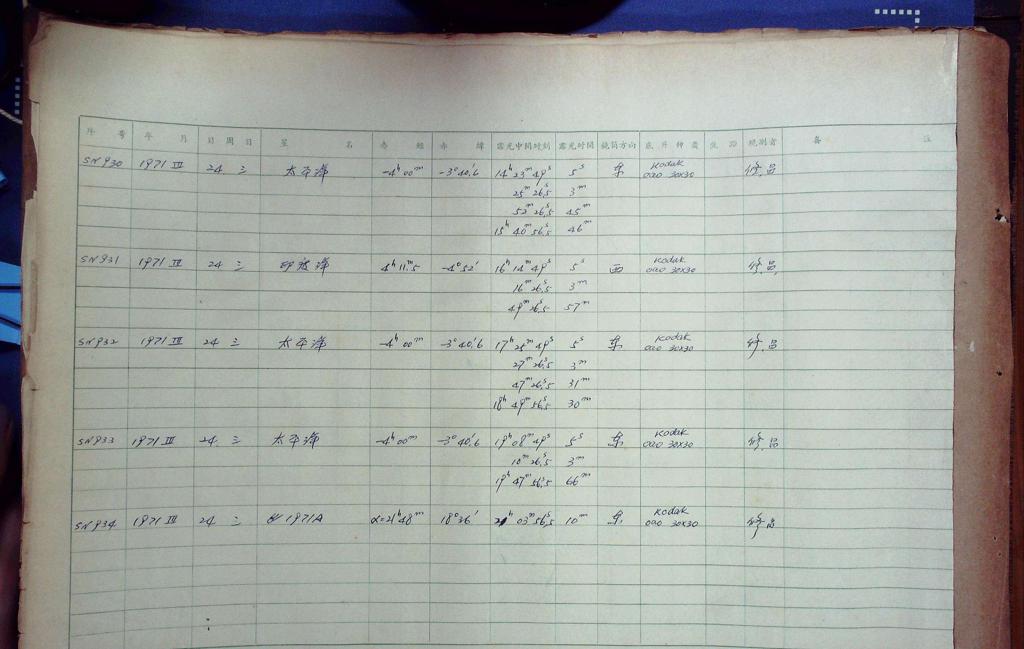 序号 年月 日周日 星名 赤經 赤緯 露光中間时刻 露光时间 鏡筒方向 底片种类 观測者 备註
SN930 1971 III 24 三 太平洋 -4ʰ00ᵐ -3°40.′6 14ʰ23ᵐ49ˢ 5ˢ 东 Kodak OaO 30x30
25ᵐ26.ˢ5 3ᵐ
52ᵐ26.ˢ5 45ᵐ
15ʰ40ᵐ56.ˢ5 46ᵐ
SN931 1971 III 24 三 印度洋 4ʰ11.ᵐ5 -4°52′ 16ʰ14ᵐ49ˢ 5ˢ 西 Kodak OaO 30x30
16ᵐ26.ˢ5 3ᵐ
49ᵐ26.ˢ5 57ᵐ
SN932 1971 III 24 三 太平洋 -4ʰ00ᵐ -3°40.′6 17ʰ25ᵐ49ˢ 5ˢ 东 Kodak OaO 30x30
27ᵐ26.ˢ5 3ᵐ
47ᵐ26.ˢ5 31ᵐ
18ʰ49ᵐ56.ˢ5 30ᵐ
SN933 1971 III 24 三 太平洋 -4ʰ00ᵐ -3°40.′6 19ʰ08ᵐ49ˢ 5ˢ 东 Kodak OaO 30x30
10ᵐ26.ˢ5 3ᵐ
19ʰ47ᵐ56.ˢ5 66ᵐ
SN934 1971 III 24 三 1971A α=21ʰ48ᵐ 18°36′ 21ʰ03ᵐ56.ˢ5 10ᵐ 东 Kodak OaO 30x30